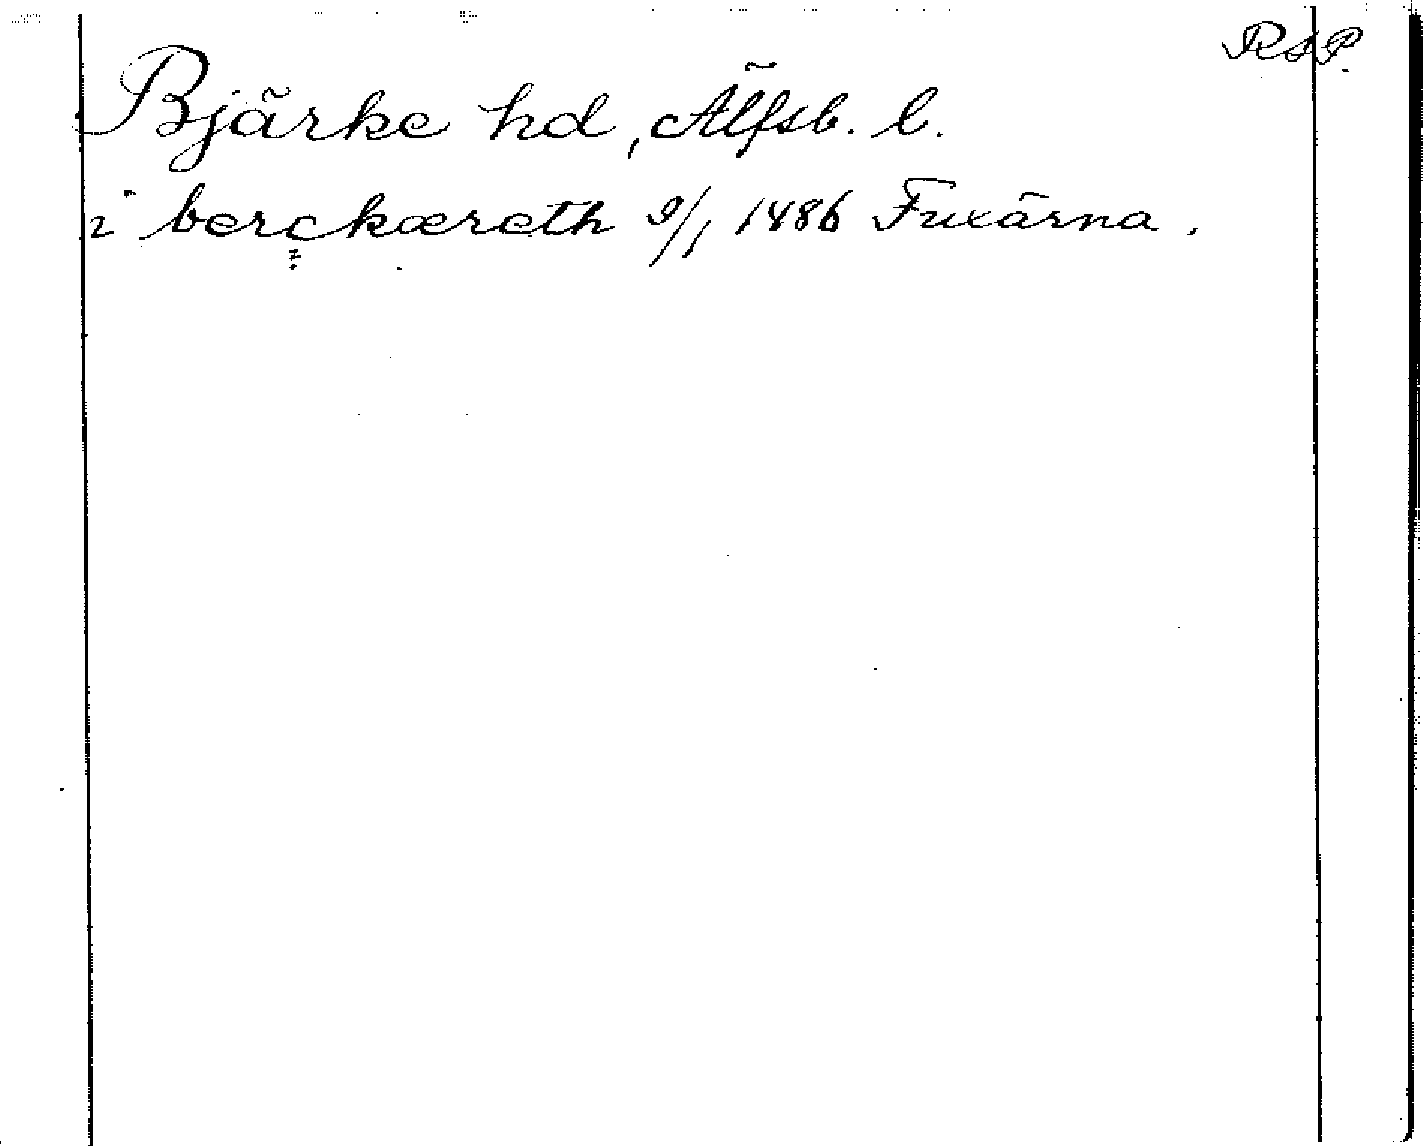 RSP.
Bjärke hd, Älfsb. l.
i berckæreth 9/1 1486 Fuxärna.